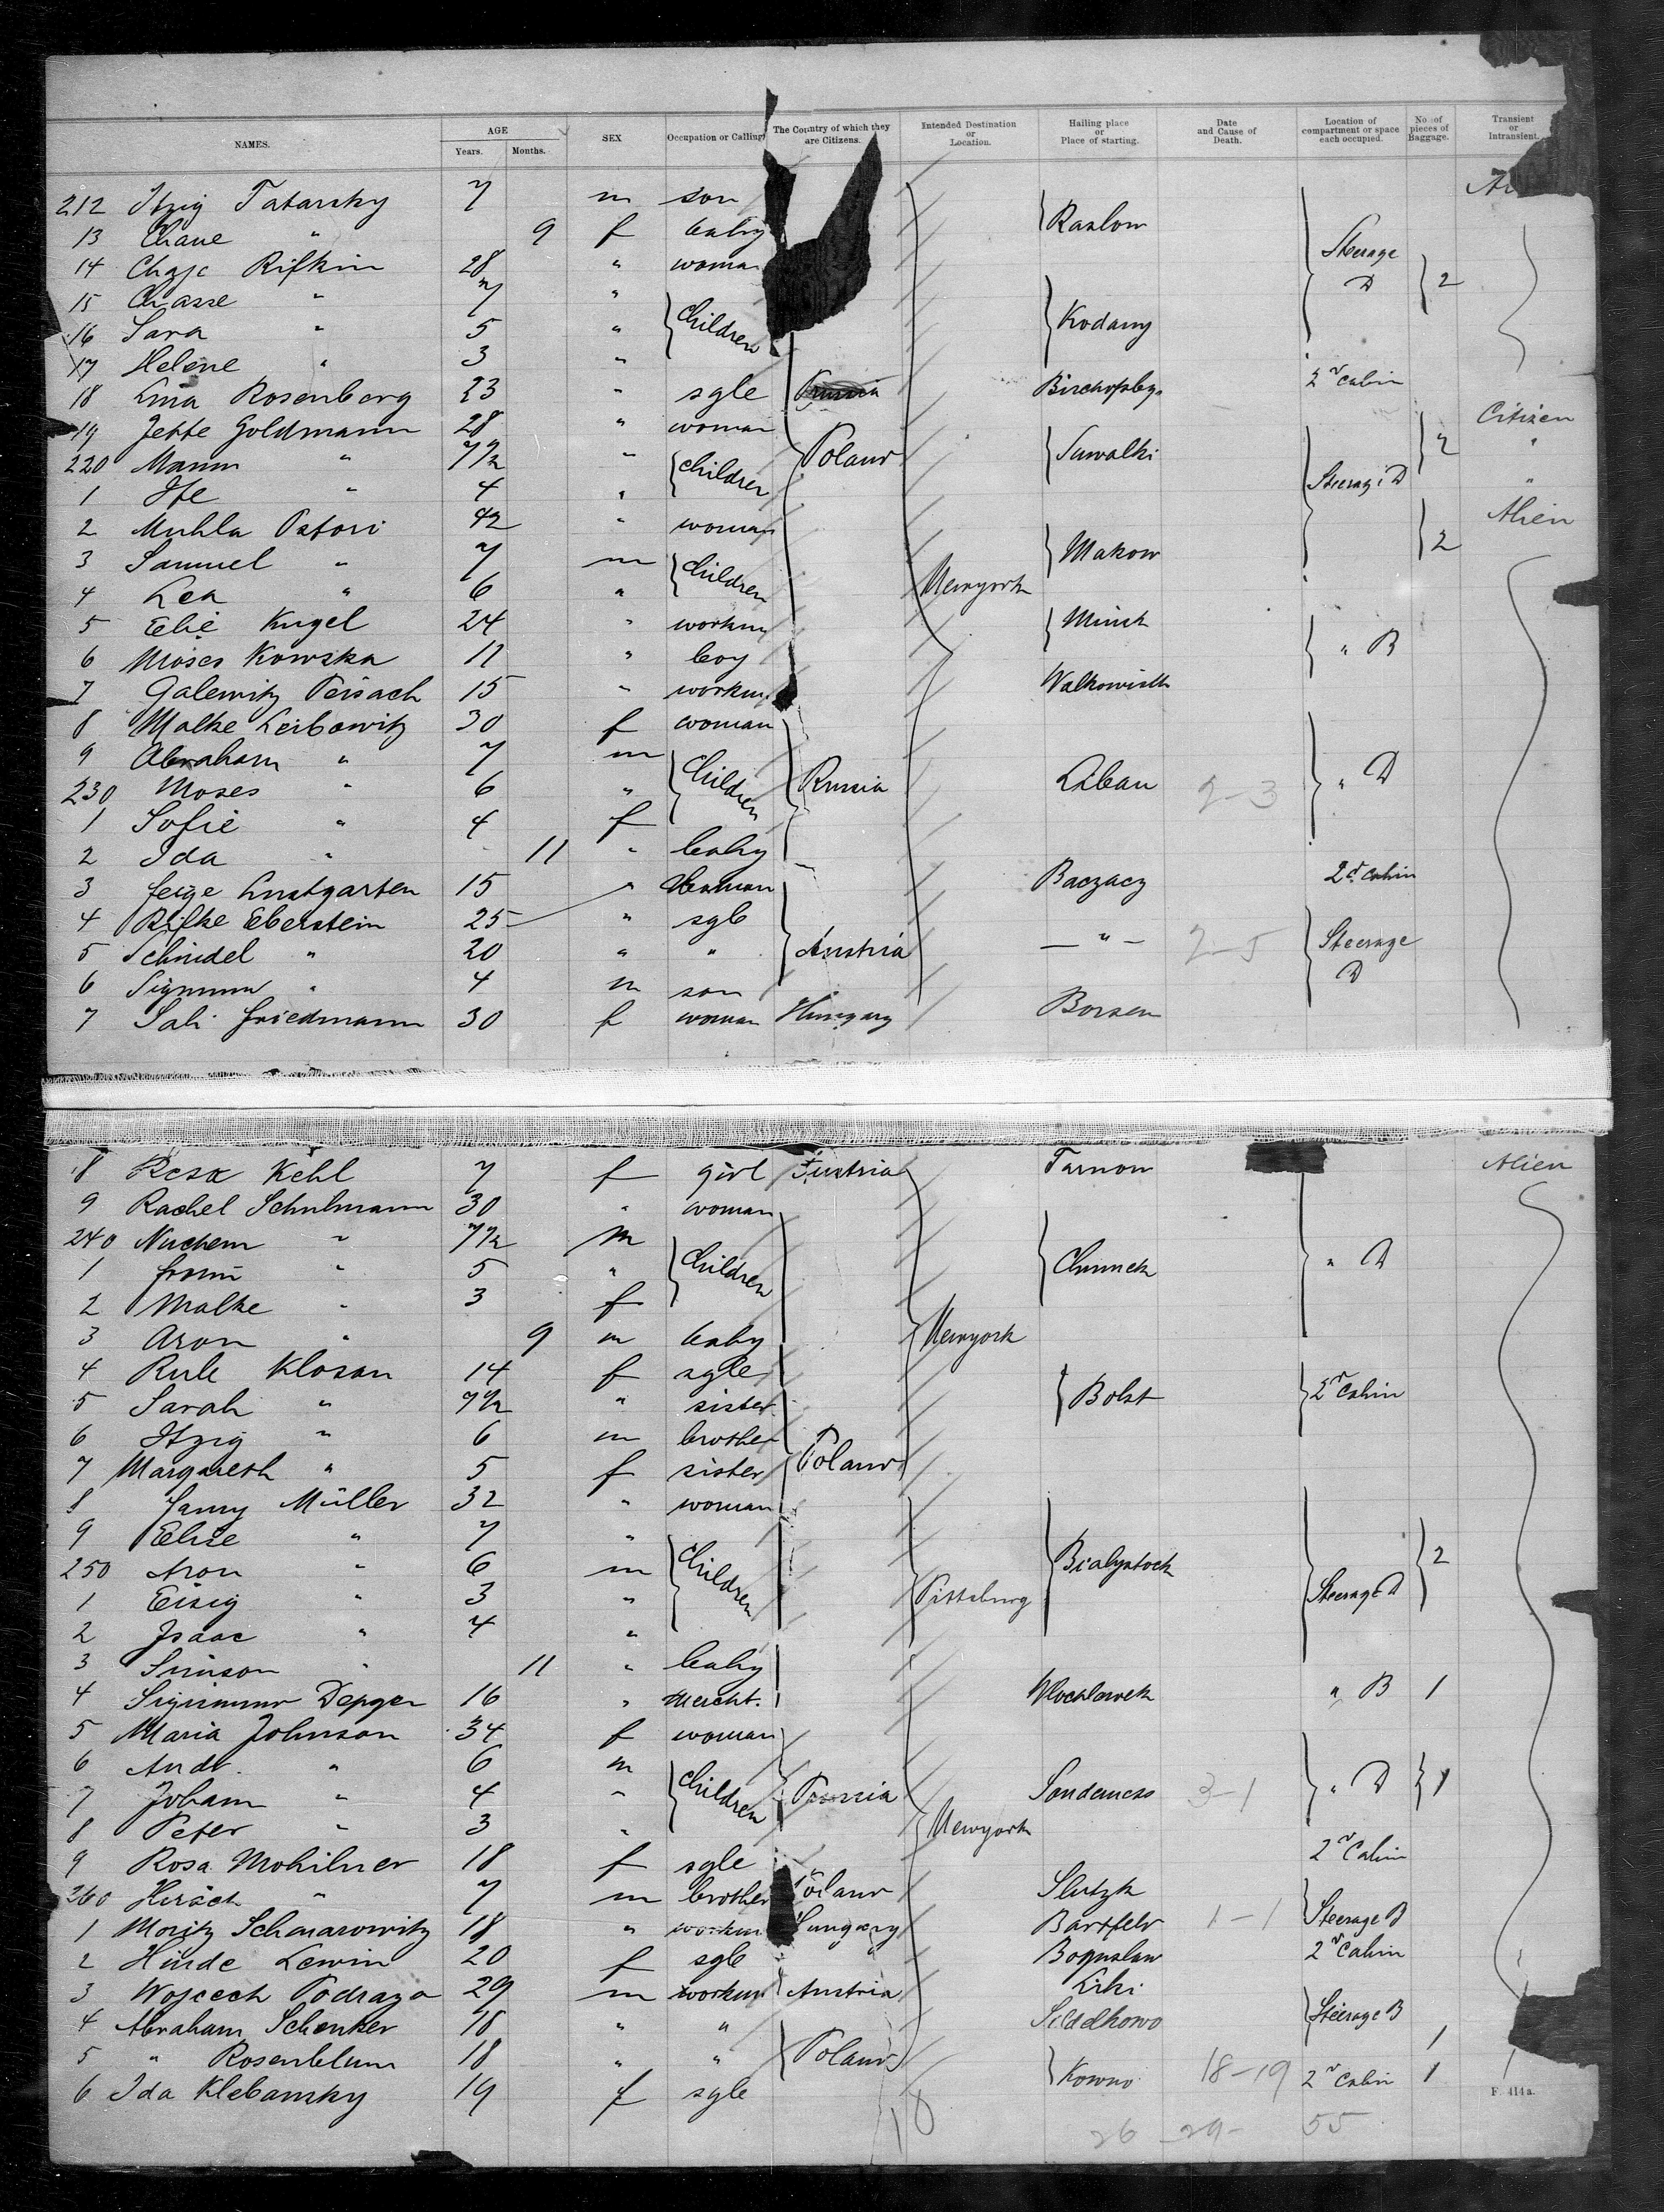 NAMES. AGE Years. Months. SEX Occupation or Calling The Country of which they are Citizens. Intended Destination or Location. Hailing place or Place of starting. Date and Cause of Death. Location of compartment or space each occupied. No. of pieces of Baggage. Transient or Intransient.
212 Itzig Tatarsky 7 m son
13 Chane " 9 f baby Raslow
14 Chaje Rifkin 28 " woman Steerage D 2
15 Chasse " 7 " Children
16 Sara " 5 " Kodany
17 Helene " 3 "
18 Lina Rosenberg 23 " sgle 2nd Cabin
19 Jette Goldmann 28 " woman Citizen
220 Mann " 7 1/2 " Children Poland Suwalki 2 "
1 Ife " 4 " Steerage D "
2 Muhla Pastori 42 " woman Alien
3 Samuel " 7 m Children Makow 2
4 Lea " 6 " Newyork
5 Elie Kugel 24 " workm Minsk
6 Moses Kowska 11 " boy " B
7 Galewitz Peisach 15 " workm Walkowisk
8 Malke Leibowitz 30 f woman
9 Abraham " 7 m Children
230 Moses " 6 " Russia Libau 2-3 " D
1 Sofie " 4 f
2 Ida " 11 " baby
3 Feige Lustgarten 15 " Woman Baczacz 2d Cabin
4 Rifke Eberstein 25 " sgle
5 Schindel " 20 " " Austria — " — 2-5 Steerage D
6 Sigmund " 4 m son
7 Sali Friedmann 30 f woman Hungary Borsen
8 Resa Kehl 7 f girl Austria Tarnow Alien
9 Rachel Schulmann 30 " woman
240 Nuchem " 7 1/2 m Children
1 " 5 " " D
2 Malke " 3 f
3 Aron " 9 m baby Newyork
4 Rule Klosan 14 f sgle
5 Sarah " 7 1/2 " sister Bolst 2nd Cabin
6 Itzig " 6 m brother
7 Margareth " 5 f sister Poland
8 Fanny Müller 32 " woman
9 Elise " 7 " Children
250 Aron " 6 m Bialystock 2
1 Eisig " 3 " Pittsburg Steerage D
2 Isaac " 4 "
3 Simson " 11 " baby
4 Sigismund Depger 16 " Mercht. Wloclawek " B 1
5 Maria Johnson 34 f woman
6 Andr. " 6 m Children
7 Johann " 4 " Russia 3-1 " D 1
8 Peter " 3 " Newyork
9 Rosa Mohilner 18 f sgle 2nd Cabin
260 Hirsch " 7 m brother Poland Slutzk
1 Moritz Schmarowitz 18 " workm Hungary Bartfeld 1-1 Steerage B
2 Hinde Lewin 20 f sgle Boguslaw 2nd Cabin
3 Wojcech Podraza 29 m workm Austria Liki
4 Abraham Schenker 18 " " Steerage B 1
5 " Rosenblum 18 " " Poland
6 Ida Klebansky 19 f sgle Kowno 18-19 2nd Cabin 1
F. 414a.
18 26 29- 55